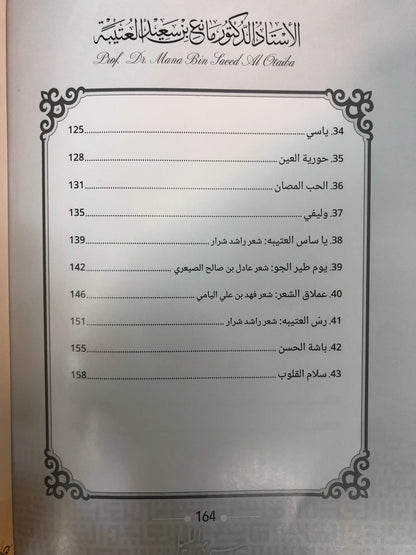 الأستاذ الدكتور مانع بن سعيد العتيبة
Prof. Dr. Mana Bin Saeed Al Otaiba
34. ياسي ..... 125
35. حورية العين ..... 128
36. الحب المصان ..... 131
37. وليفي ..... 135
38. يا ساس العتيبه: شعر راشد شرار ..... 139
39. يوم طير الجو: شعر عادل بن صالح الصيعري ..... 142
40. عملاق الشعر: شعر فهد بن علي اليامي ..... 146
41. رسْ العتيبه: شعر راشد شرار ..... 151
42. باشة الحسن ..... 155
43. سلام القلوب ..... 158
164